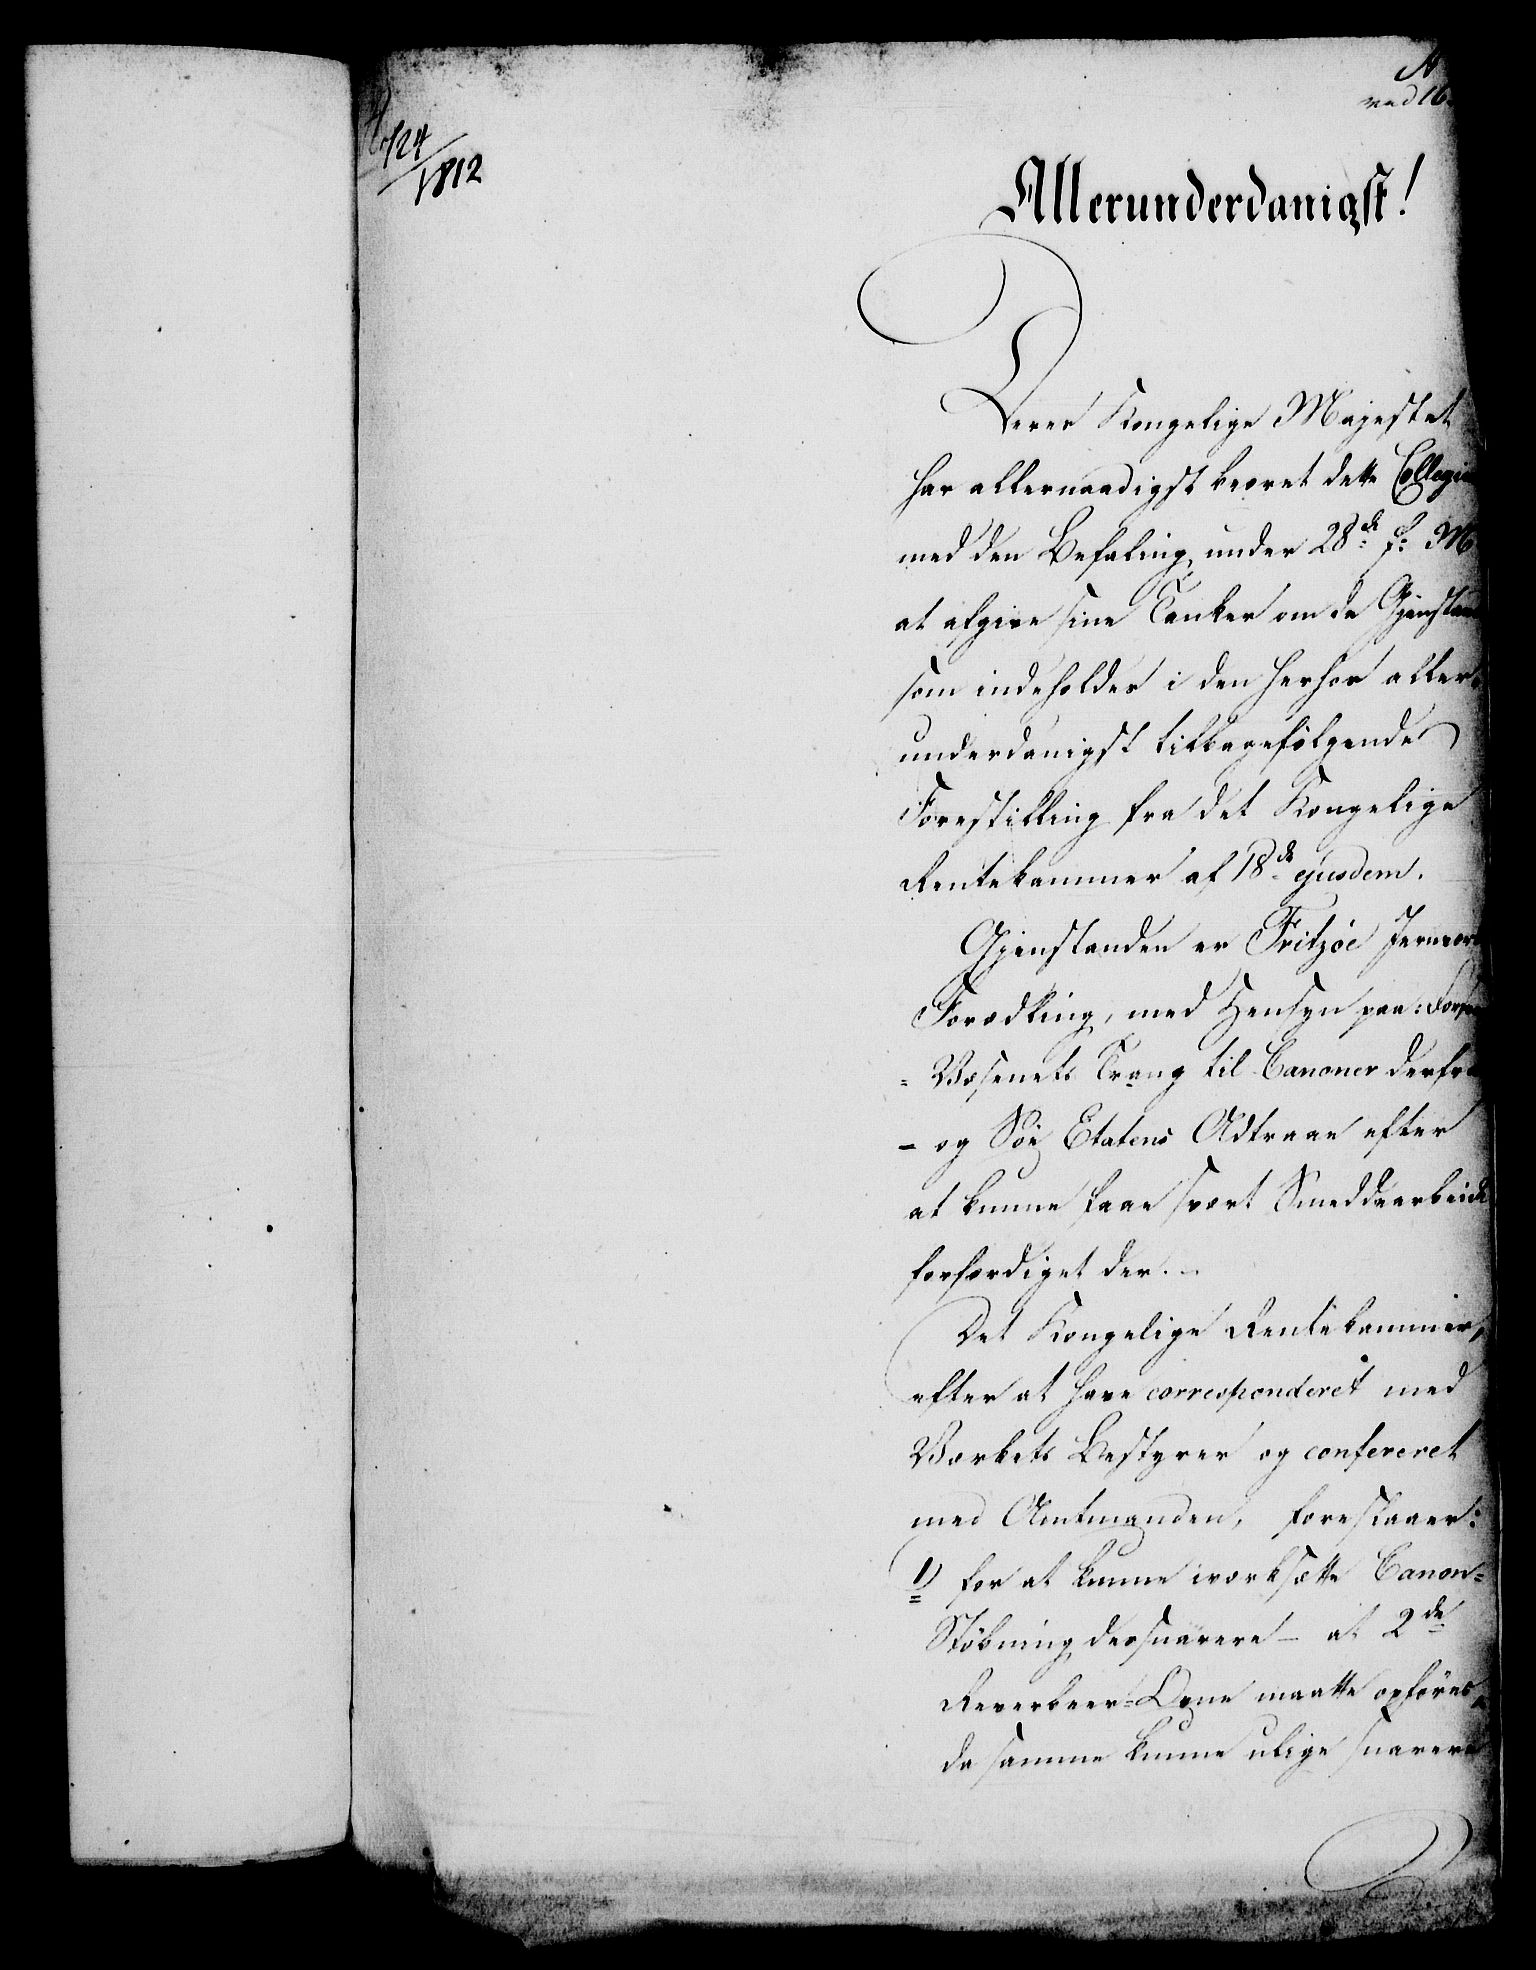 A
ved 16
724
1812
Allerunderdanigst!
Deres Kongelige Majestet
har allernaadigst beæret dette Collegiu
med den Befaling, under 28de f: M
at afgive sine Tanker om de Gjenstan
som indeholdes i den herhos aller-
underdanigst tilbagefølgende
Forestilling fra det Kongelige
Rentekammer af 18de ejusdem.
Gjenstanden er Fritzøe Jernvær
Forædling, med Hensyn paa: Forsva
= Væsenets Trang til Canoner derfra
- og Søe Etatens Adtraae efter
at kunne faae svært Smeddearbeide
forfærdiget der. -
Det Kongelige Rentekammer,
efter at have corresponderet med
Værkets Bestyrer og confereret
med Amtmanden, foreslaaer:
1) for at kunne iværksætte Canon=
Støbning desnarere - at 2de
Reverbeer=Ovne maatte opføres,
da samme kunne ulige snarere